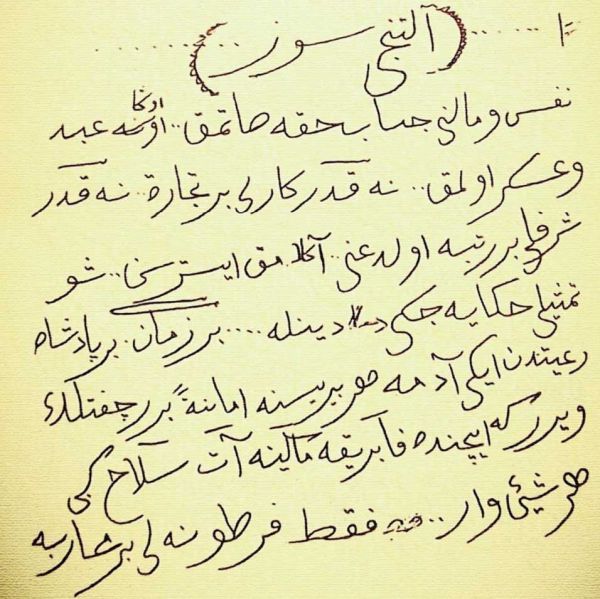 آلتنجی سوز
نفس و مالنی جناب حقه صاتمق.. اوڭا عبد
و عسكر اولمق.. نه قدر كارلی بر تجارة.. نه قدر
شرفلی بر رتبه اولدغنی.. آڭلامق ایسترسڭ.. شو
تمثیلی حكایه جكی دیڭله .... بر زمان. بر پادشاه
رعیتندن ایكی آدمه هر بریسنه امانةً برر چفتلك
ویرر كه ایچنده فابریقه ماكینه آت سلاح كبی
هر شیئی وار.. فقط فرطونه لی بر محاربه